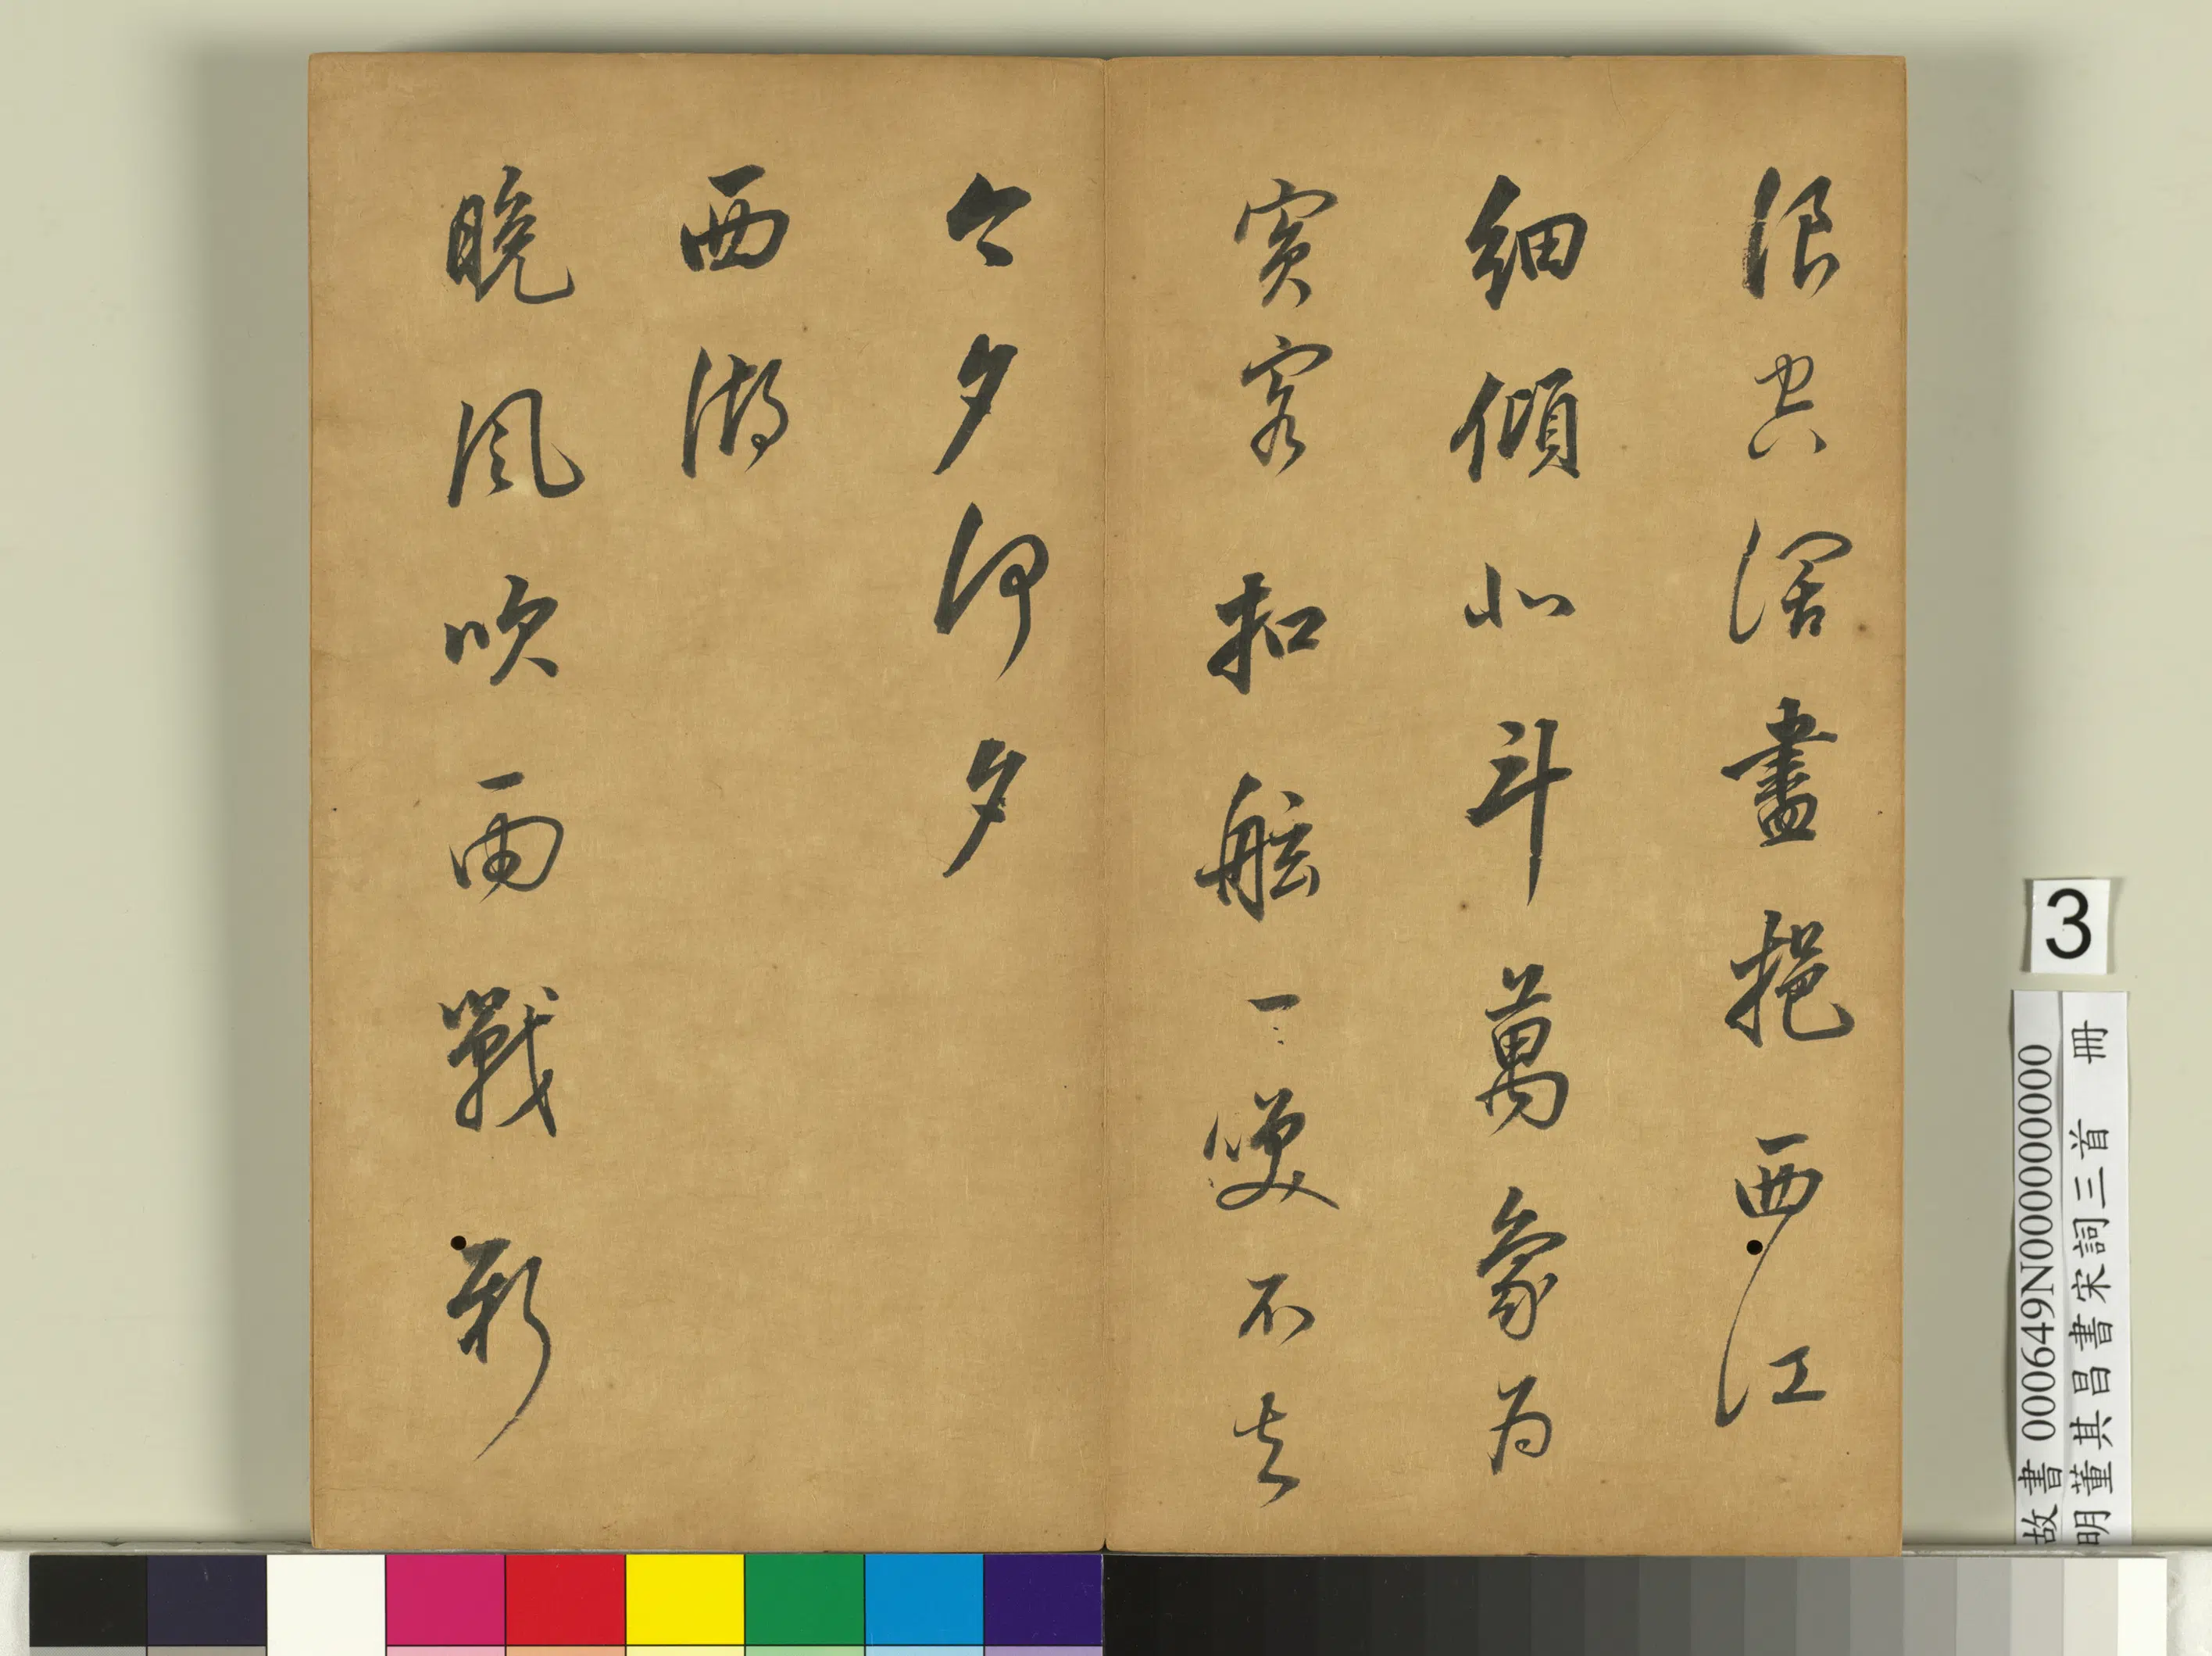 浪空濶盡挹西江
細傾北斗萬象為
賓客扣舷一嘯不知
今夕何夕
西湖
晚風吹雨戰新
3
故書 000649N000000000
明董其昌書宋詞三首 冊